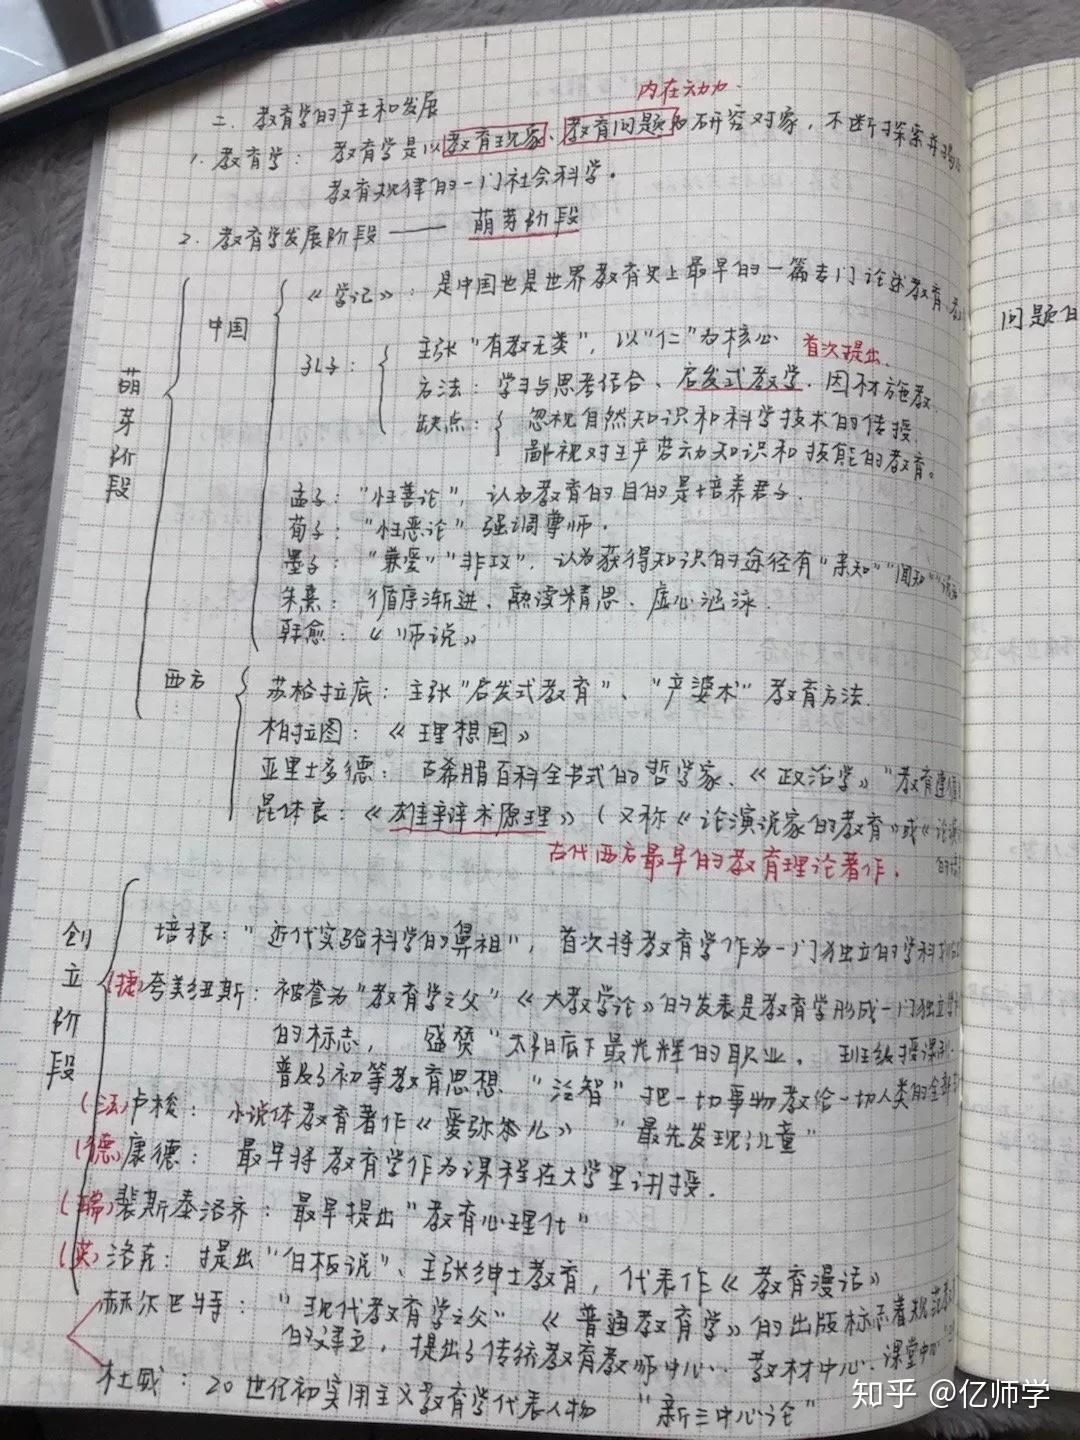 内在动力.
二. 教育学的产生和发展
1. 教育学： 教育学是以教育现象、教育问题为研究对象，不断探索并揭示
教育规律的一门社会科学。
2. 教育学发展阶段 —— 萌芽阶段
萌芽阶段
中国
《学记》：是中国也是世界教育史上最早的一篇专门论述教育、教
问题的
孔子： 主张“有教无类”，以“仁”为核心 首次提出.
方法：学习与思考结合、启发式教学. 因材施教.
缺点： 忽视自然知识和科学技术的传授.
鄙视对生产劳动知识和技能的教育。
孟子：“性善论”，认为教育的目的是培养君子.
荀子：“性恶论” 强调尊师.
墨子： “兼爱”“非攻”，认为获得知识的途径有“亲知”“闻知”“说知
朱熹： 循序渐进、熟读精思、虚心涵泳.
韩愈：《师说》
西方
苏格拉底：主张“启发式教育”、“产婆术”教育方法.
柏拉图：《理想国》
亚里士多德： 古希腊百科全书式的哲学家、《政治学》“教育遵循
昆体良：《雄辩术原理》（又称《论演说家的教育》或《论演
古代西方最早的教育理论著作.
创立阶段
培根：“近代实验科学的鼻祖”，首次将教育学作为一门独立的学科
(捷)夸美纽斯：被誉为“教育学之父”《大教学论》的发表是教育学形成一门独立学
的标志， 盛赞“太阳底下最光辉的职业. 班级授课制.
普及了初等教育思想 “泛智” 把一切事物教给一切人类的全部
(法)卢梭： 小说体教育著作《爱弥尔儿》 “最先发现儿童”
(德)康德： 最早将教育学作为课程在大学里讲授.
(瑞)裴斯泰洛齐：最早提出“教育心理化”
(英)洛克： 提出“白板说”、主张绅士教育，代表作《教育漫话》
赫尔巴特： “现代教育学之父” 《普通教育学》的出版标志着规范教
的建立，提出了传统教育教师中心、教材中心、课堂中心
杜威：20世纪初实用主义教育学代表人物 “新三中心论”
知乎 @亿师学